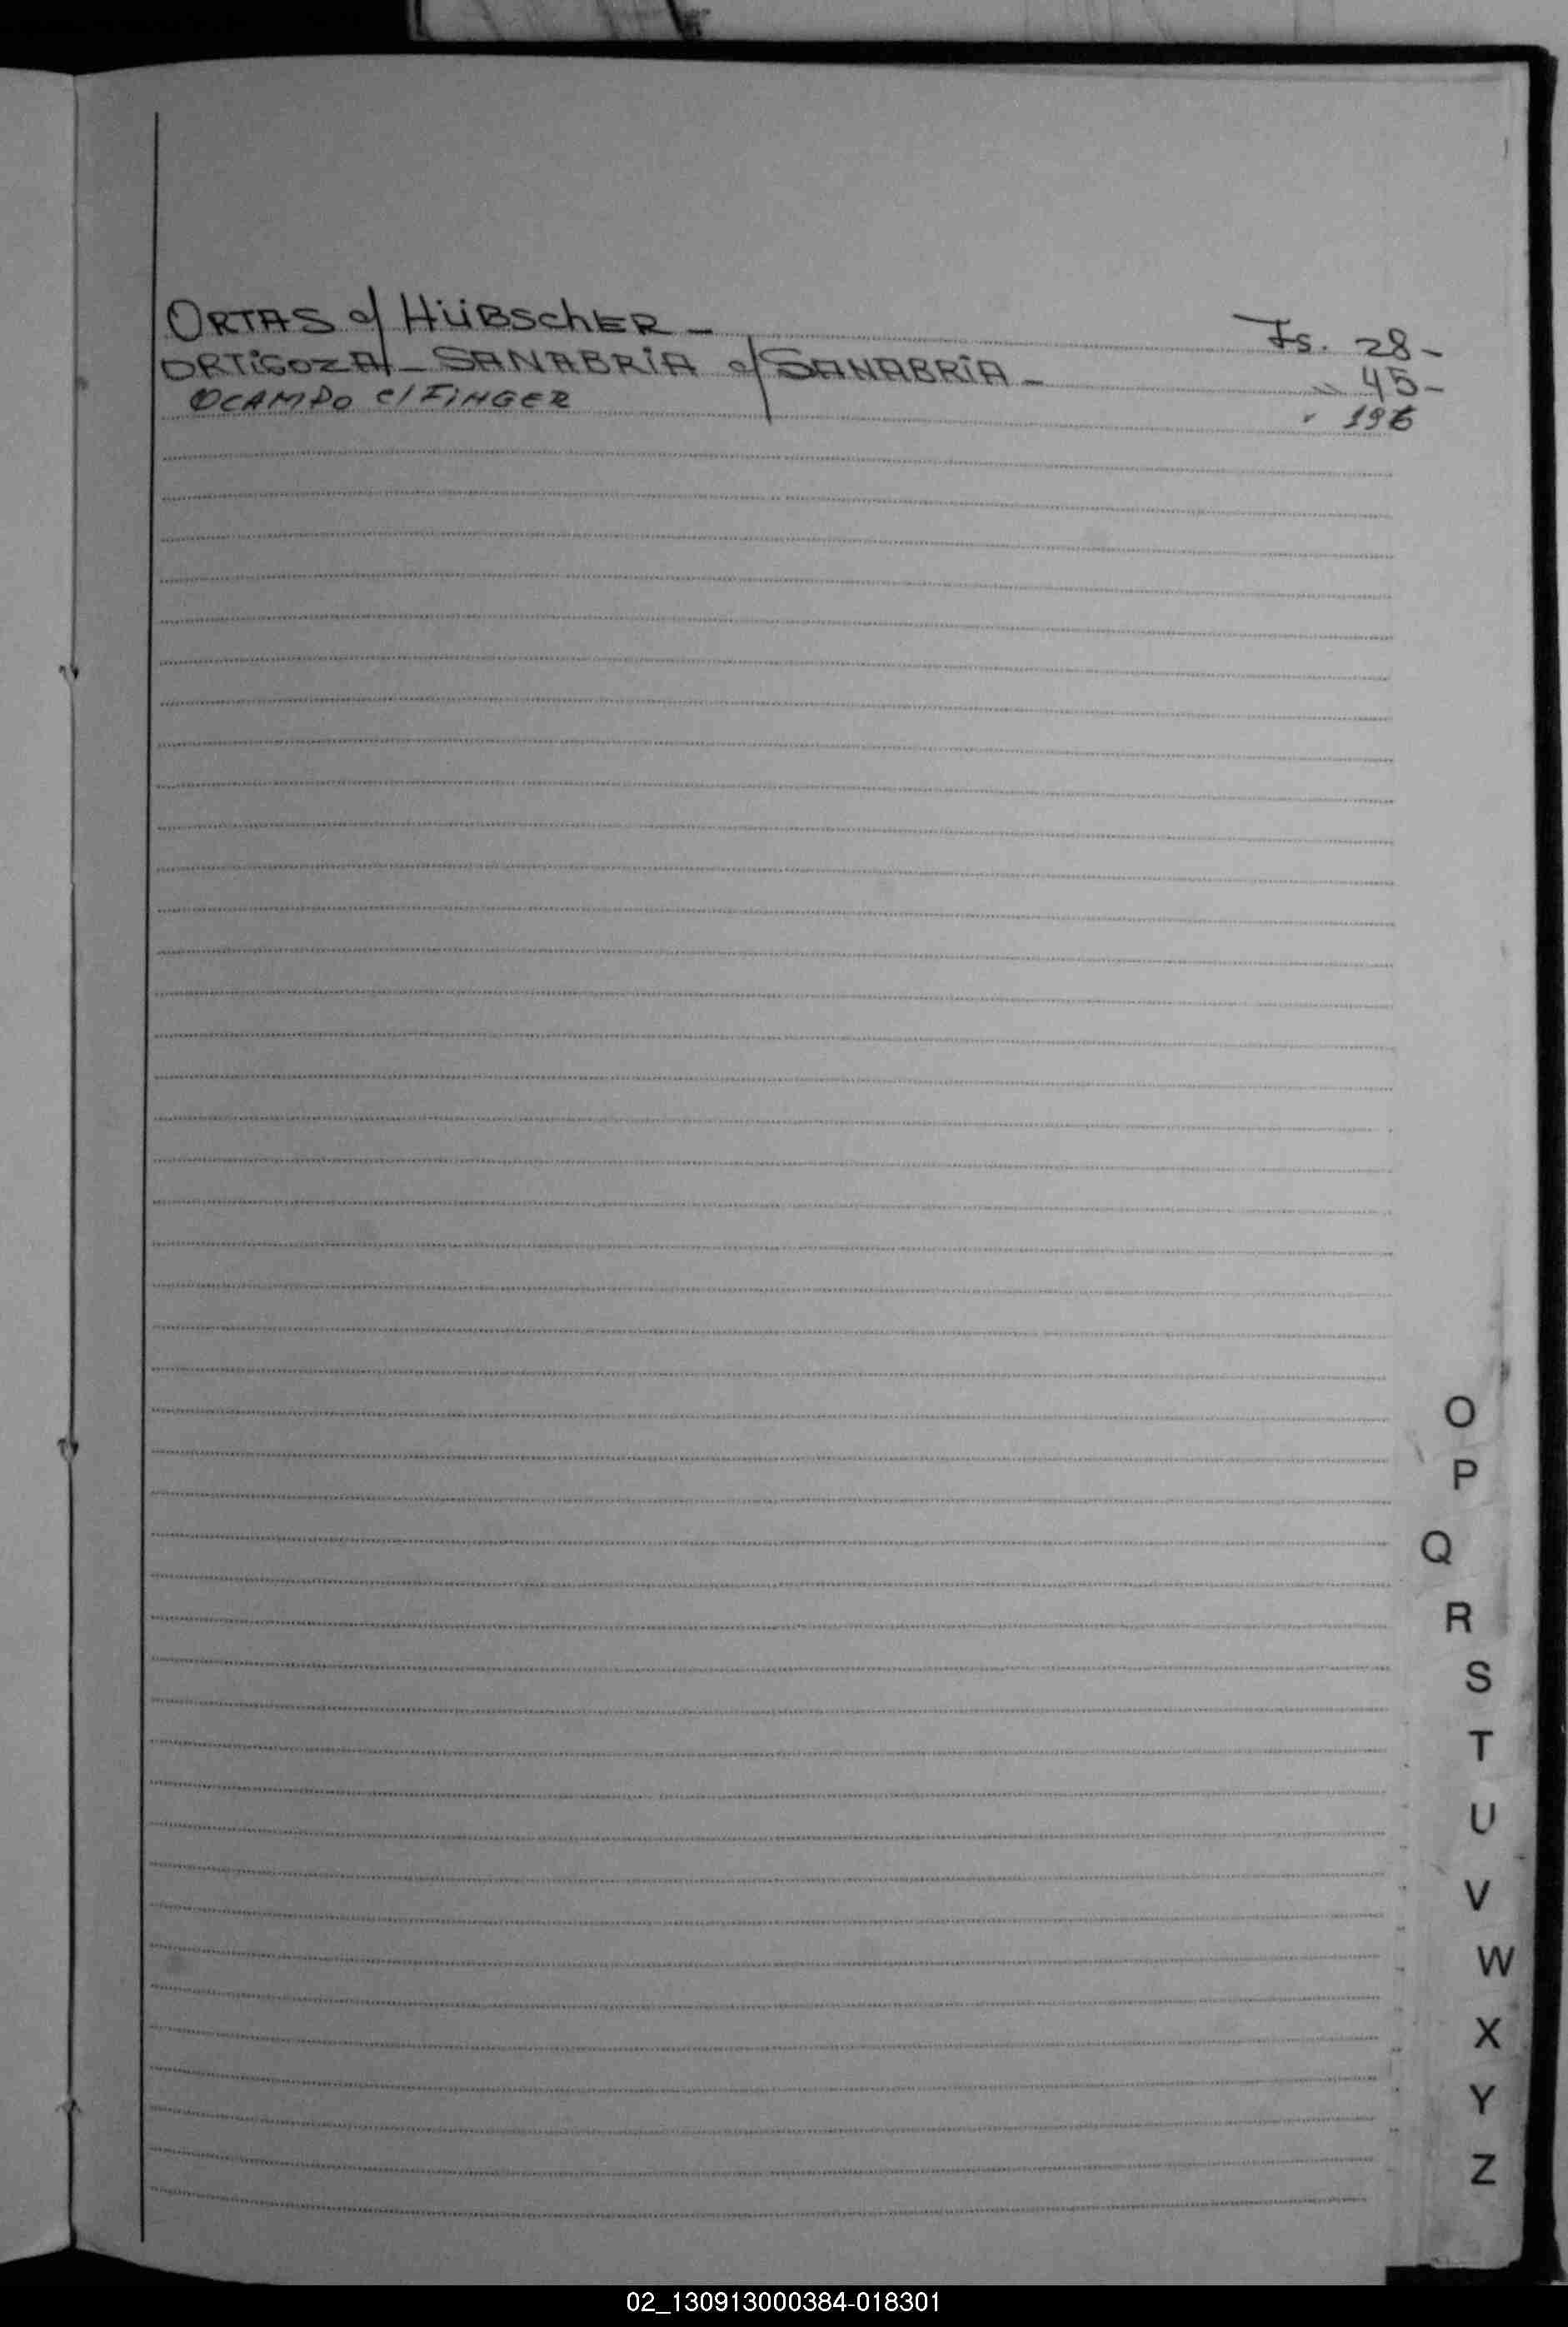 ORTAS c/ HÜBSCHER - Fs. 28-
ORTIGOZA - SANABRIA c/ SANABRIA - " 45-
OCAMPO c/ FINGER " 196
O
P
Q
R
S
T
U
V
W
X
Y
Z
02_130913000384-018301